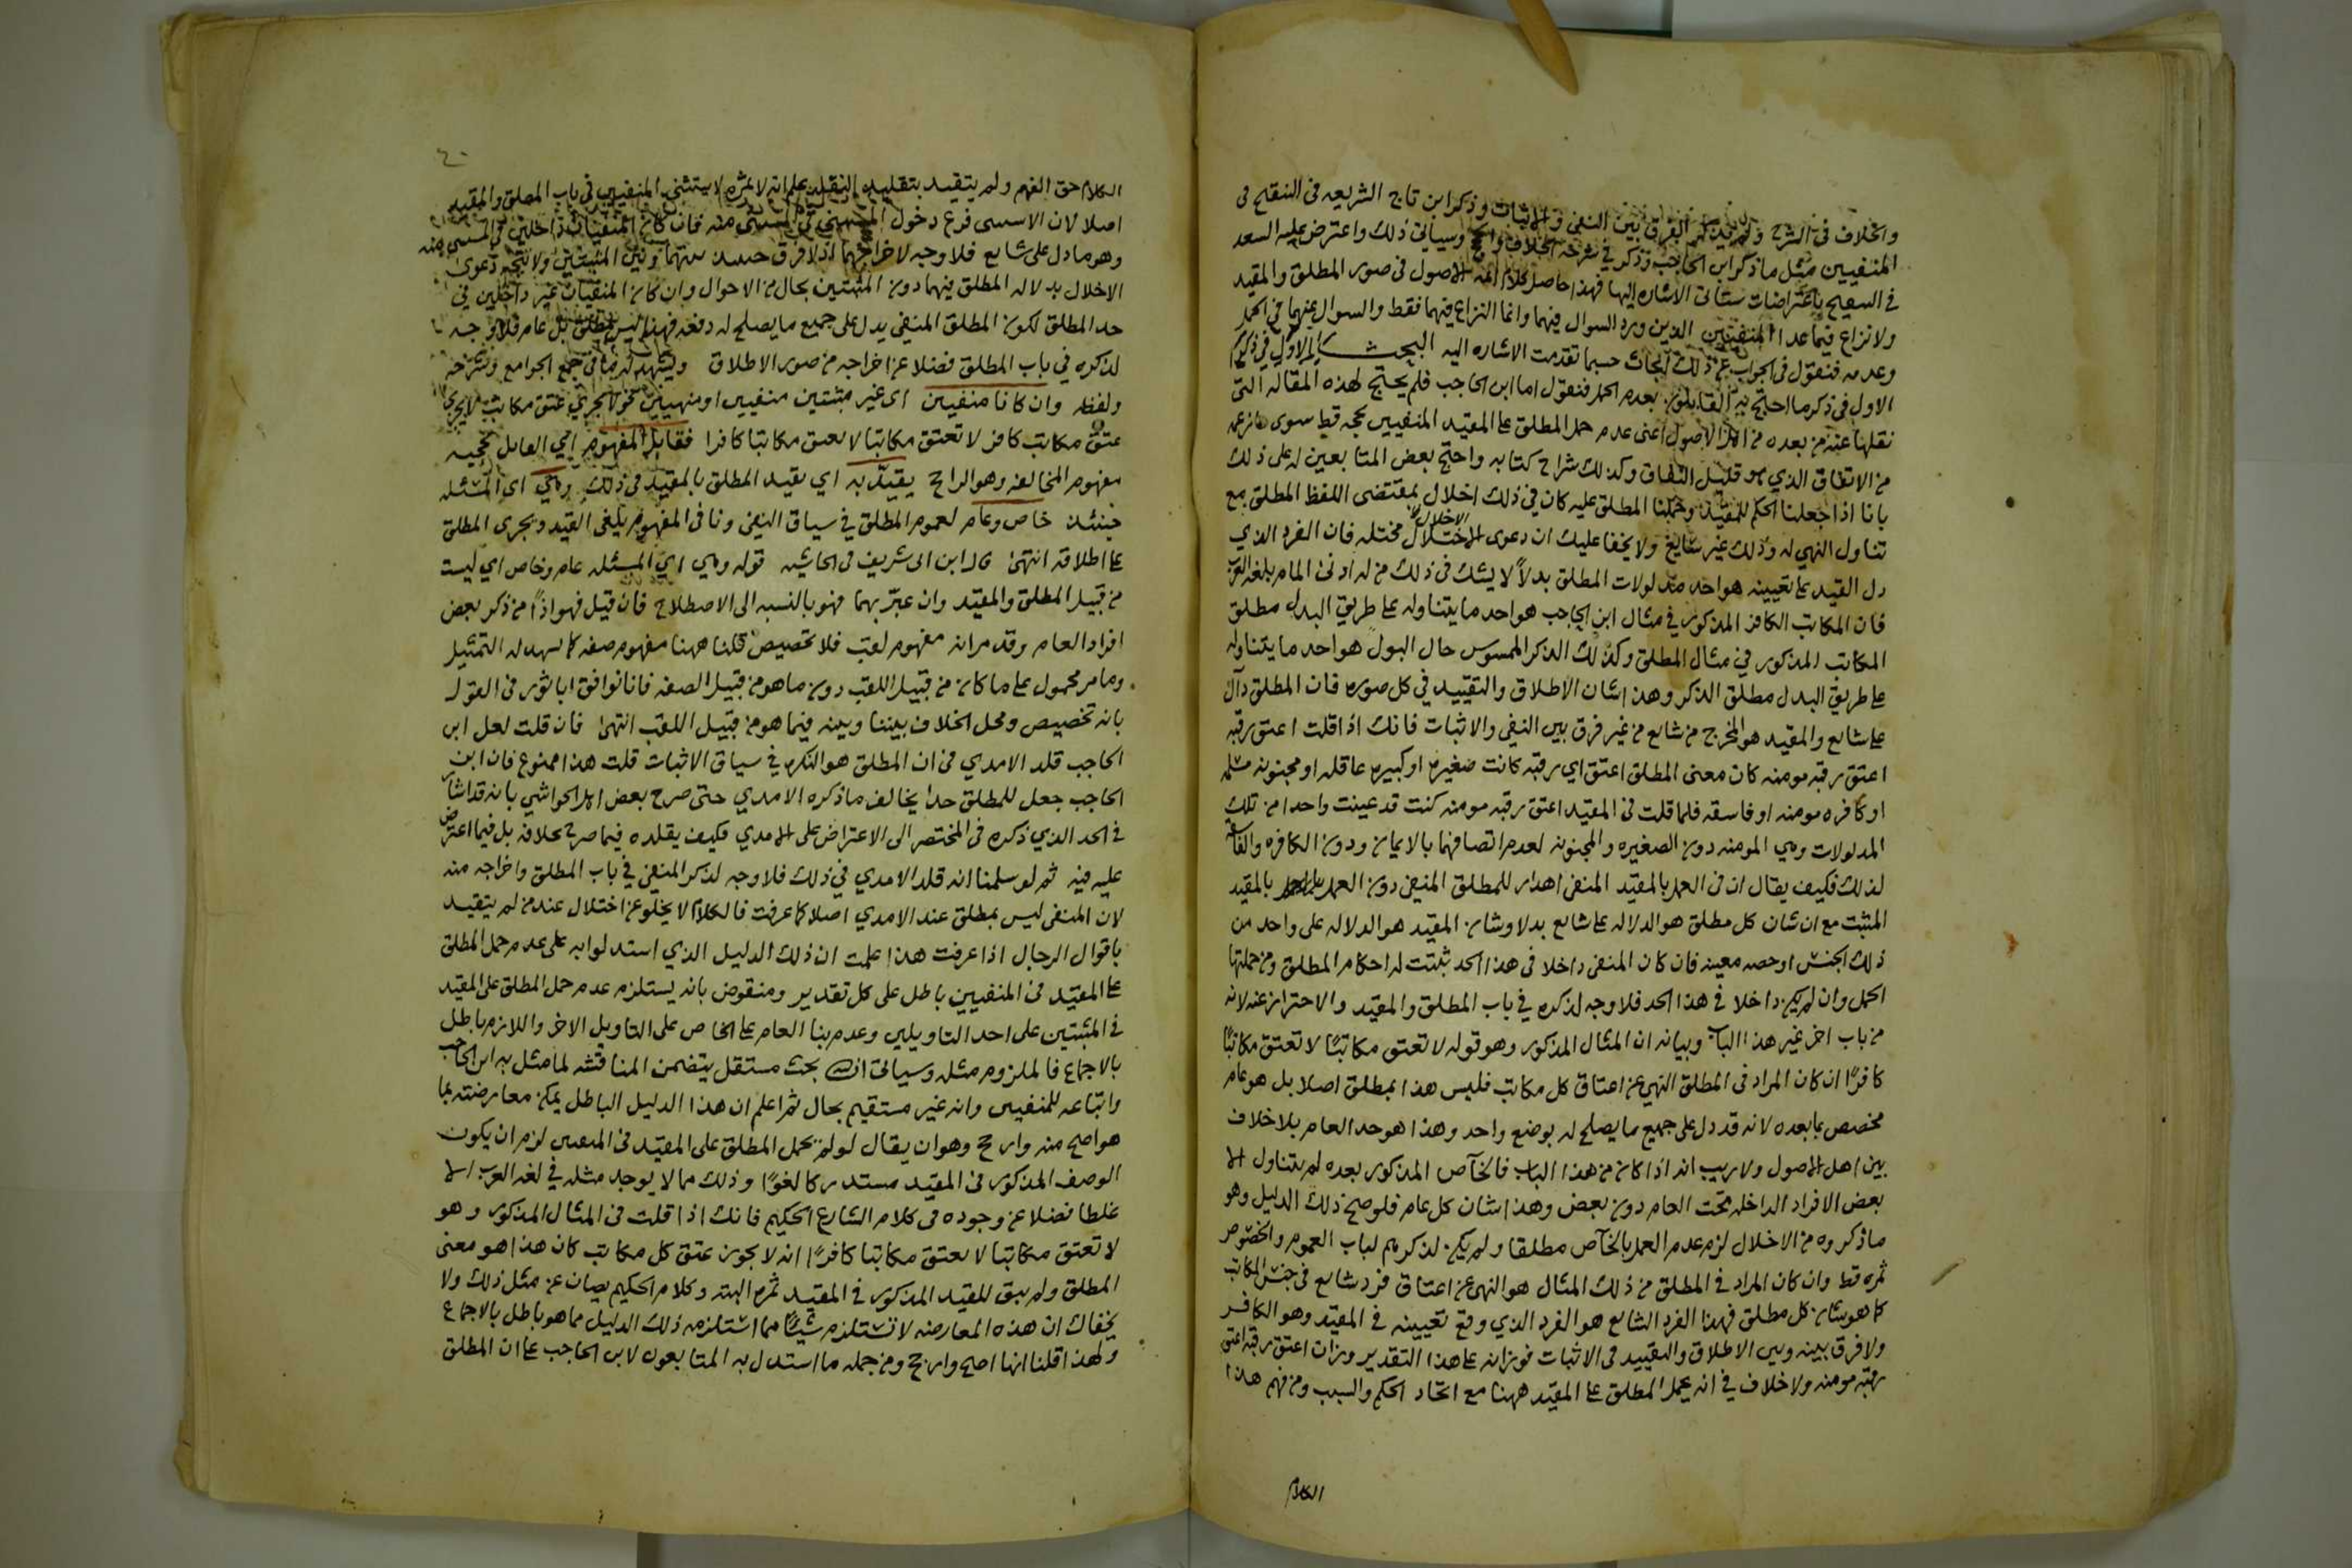 والخلاف في الشرح الفرق بين النفي والاثبات وذكر ابن تاج الشريعه في التنقيح في
المنفيين مثل ما ذكر ابن الحاجب وذكر في شرحه الخلاف وسياتي ذلك واعترض عليه السعد
في باعتراضات ستاتي الاشاره اليها فهذا حاصل كلام ائمه الاصول في صور المطلق والمقيد
ولا نزاع فيما عدا المنفيين الذين ورد السوال فيهما وانما النزاع فيهما فقط والسوال عنهما في الحمل
وعدمه فنقول في الجواب عن ذلك ابحاث حسبما تقدمت الاشاره اليه البحث
الاول في ذكر ما احتج به القايلون بعدم الحمل فنقول اما ابن الحاجب فلم يحتج لهذه المقاله التي
نقلها عنه من بعده من اهل الاصول اعني عدم حمل المطلق على المقيد المنفيين بحجه قط سوى
من الاتفاق الذي هو قليل النفاق وكذلك شراح كتابه واحتج بعض المتابعين له على ذلك
بانا اذا جعلنا الحكم للمقيد وحملنا المطلق عليه كان في ذلك اخلال بمقتضى اللفظ المطلق مع
تناول النهي له وذلك غير سائغ ولا يخفا عليك ان دعوى الاخلال مختله فان الفرد الذي
دل القيد على تعيينه هو احد مدلولات المطلق بدلاً لا يشك في ذلك من له ادنى المام بلغه العرب
فان المكاتب الكافر المذكور في مثال ابن الحاجب هو احد ما يتناوله على طريق البدل مطلق
المكاتب المذكور في مثال المطلق وكذلك الذكر الممسوس حال البول هو احد ما يتناوله
على طريق البدل مطلق الذكر وهذا شان الاطلاق والتقييد في كل صوره فان المطلق دال
على شايع والمقيد هو المخرج من شايع من غير فرق بين النفي والاثبات فانك اذا قلت اعتق رقبه
اعتق رقبه مومنه كان معنى المطلق اعتق اي رقبه كانت صغيره او كبيره عاقله او مجنونه مسلمه
او كافره مومنه او فاسقه فلما قلت في المقيد اعتق رقبه مومنه كنت قد عينت واحدا من تلك
المدلولات وهي المومنه دون الصغيره والمجنونه لعدم اتصافهما بالايمان ودون الكافره والفاسقه
لذلك فكيف يقال ان في العمل بالمقيد المنفي اهدار للمطلق المنفي دون العمل بالمقيد
المثبت مع ان شان كل مطلق هو الدلاله على شايع بدلا وشان المقيد هو الدلاله على واحد من
ذلك الجنس او حصه معينه فان كان المنفي داخلا في هذا الحد ثبتت له احكام المطلق ومن جملتها
الحمل وان لم يكن داخلا في هذا الحد فلا وجه لذكره في باب المطلق والمقيد والاحتراز عنه لانه
من باب اخر غير هذا الباب وبيانه ان المثال المذكور وهو قوله لا تعتق مكاتبًا لا تعتق مكاتبًا
كافرًا ان كان المراد في المطلق النهي عن اعتاق كل مكاتب فليس هذا بمطلق اصلا بل هو عام
مخصص بما بعده لانه قد دل على جميع ما يصلح له بوضع واحد وهذا هو حد العام بلا خلاف
بين اهل الاصول ولا ريب انه اذا كان من هذا الباب فالخاص المذكور بعده لم يتناول الا
بعض الافراد الداخله تحت العام دون بعض وهذا شان كل عام فلو صح ذلك الدليل وهو
ما ذكروه من الاخلال لزم عدم العمل بالخاص مطلقا ولم يكن لذكرهم لباب العموم والخصوص
ثمره قط وان كان المراد في المطلق من ذلك المثال هو النهي عن اعتاق فرد شايع في جنس المكاتب
كما هو شان كل مطلق فهذا الفرد الشايع هو الفرد الذي وقع تعيينه في المقيد وهو الكافر
ولا فرق بينه وبين الاطلاق والتقييد في الاثبات فوزانه على هذا التقدير وزان اعتق رقبه اعتق
رقبه مومنه ولا خلاف في انه يحمل المطلق على المقيد ههنا مع اتحاد الحكم والسبب ومن فهم هذا
الكلام
٤٠
الكلام حق الفهم ولم يتقيد بتقليد علم انه لا ثمره لا يستثنى المنفيين في باب المطلق والمقيد
اصلا لان الاستثنى فرع دخول المستثنى في المستثنى منه فان كان المنفيان داخلين في المستثنى منه
وهو ما دل على شايع فلا وجه لاخراجهما اذ لا فرق حينئذ بينهما وبين المثبتين ولا يتجه دعوى
الاخلال بدلاله المطلق فيهما دون المثبتين بحال من الاحوال وان كان المنفيان غير داخلين في
حد المطلق لكون المطلق المنفي يدل على جميع ما يصلح له دفعه فهذا ليس بمطلق بل عام فلا وجه
لذكره في باب المطلق فضلا عن اخراجه من صور الاطلاق ويشهد له ما في جمع الجوامع وشرحه
ولفظه وان كانا منفيين اي غير مثبتين منفيين او منهيين نحو لا يجزي عتق مكاتب لا يجزي
عتق مكاتب كافر لا تعتق مكاتبا لا تعتق مكاتبا كافرا فقايل المفهوم اي القايل بحجيه
مفهوم المخالفه وهو الراجح يقيده به اي يقيد المطلق بالمقيد في ذلك وهي اي المسئله
حينئذ خاص وعام لعموم المطلق في سياق النفي ونافي المفهوم يلغي القيد ويجري المطلق
على اطلاقه انتهى قال ابن ابي شريف في الحاشيه قوله وهي اي المسئله عام وخاص اي ليست
من قبيل المطلق والمقيد وان عبر بهما فهو بالنسبه الى الاصطلاح فان قيل فهو اذًا من ذكر بعض
افراد العام وقد مر انه مفهوم لقب فلا تخصيص قلنا ههنا مفهوم صفه كما يشهد له التمثيل
وما مر محمول على ما كان من قبيل اللقب دون ما هو من قبيل الصفه فانا نوافق ابا ثور في القول
بانه تخصيص ومحل الخلاف بيننا وبينه فيما هو من قبيل اللقب انتهى فان قلت لعل ابن
الحاجب قلد الامدي في ان المطلق هو النكره في سياق الاثبات قلت هذا ممنوع فان ابن
الحاجب جعل للمطلق حدا يخالف ما ذكره الامدي حتى صرح بعض اهل الحواشي بانه قد اشار
في الحد الذي ذكره في المختصر الى الاعتراض على الامدي فكيف يقلده فيما صرح بخلافه بل فيما اعترض
عليه فيه ثم لو سلمنا انه قلد الامدي في ذلك فلا وجه لذكر المنفي في باب المطلق واخراجه منه
لان المنفي ليس بمطلق عند الامدي اصلا كما عرفت فالكلام لا يخلو عن اختلال عند من لم يتقيد
باقوال الرجال اذا عرفت هذا علمت ان ذلك الدليل الذي استدلوا به على عدم حمل المطلق
على المقيد في المنفيين باطل على كل تقدير ومنقوض بانه يستلزم عدم حمل المطلق على المقيد
في المثبتين على احد التاويلين وعدم بنا العام على الخاص على التاويل الاخر واللازم باطل
بالاجماع فالملزوم مثله وسياتي ان شا الله بحث مستقل يتضمن المناقشه لما مثل به ابن الحاجب
واتباعه للمنفيين وانه غير مستقيم بحال ثم اعلم ان هذا الدليل الباطل يمكن معارضته بما
هو اصح منه وارجح وهو ان يقال لو لم يحمل المطلق على المقيد في المنفيين لزم ان يكون
الوصف المذكور في المقيد مستدركا لغوًا وذلك مما لا يوجد مثله في لغه العرب الا
غلطا فضلا عن وجوده في كلام الشارع الحكيم فانك اذا قلت في المثال المذكور وهو
لا تعتق مكاتبا لا تعتق مكاتبا كافرًا انه لا يجوز عتق كل مكاتب كان هذا هو معنى
المطلق ولم يبق للقيد المذكور في المقيد ثمره البته وكلام الحكيم يصان عن مثل ذلك ولا
يخفاك ان هذه المعارضه لا تستلزم شيًا مما استلزمه ذلك الدليل مما هو باطل بالاجماع
ولهذا قلنا انها اصح وارجح ومن جمله ما استدل به المتابعون لابن الحاجب على ان المطلق